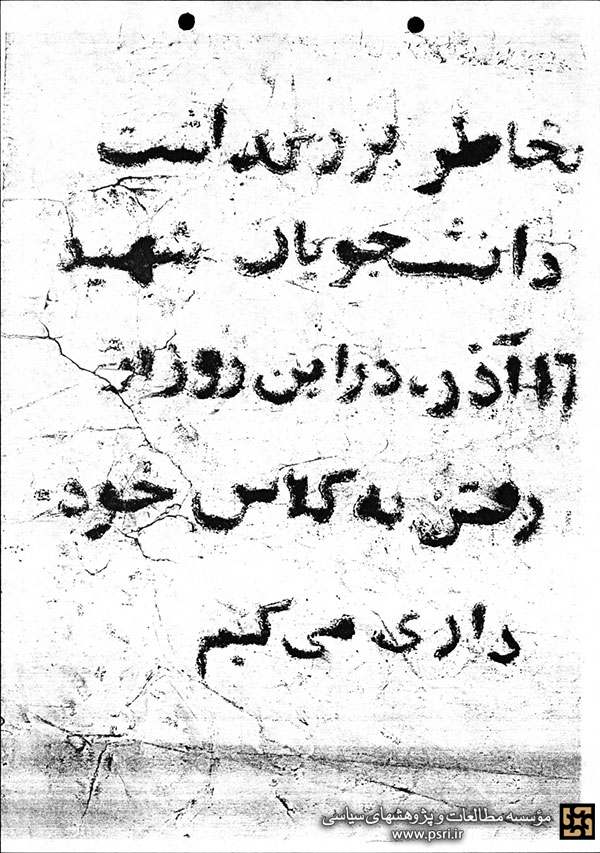 بخاطر بزرگداشت
دانشجویان شهید
۱۷ آذر، در این روز از
رفتن به کلاس خود
داری می کنیم
مؤسسه مطالعات و پژوهشهای سیاسی
www.psri.ir